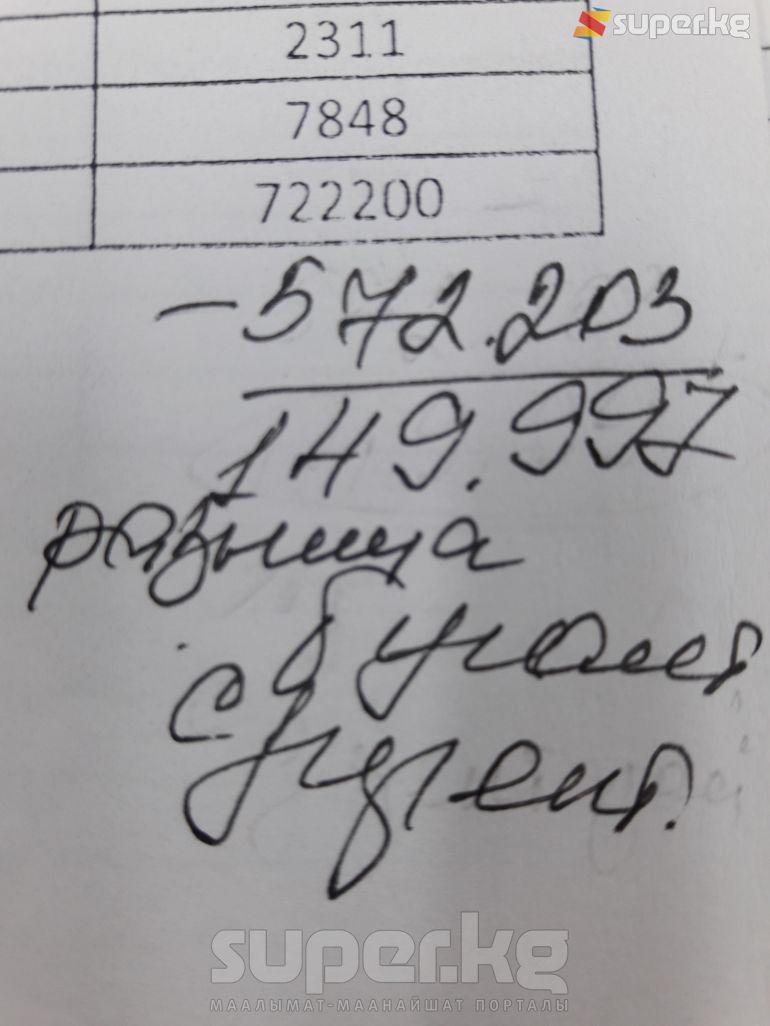 super.kg
2311
7848
722200
- 572.203
149.997
разница
с
super.kg
МААЛЫМАТ-МААНАЙШАТ ПОРТАЛЫ